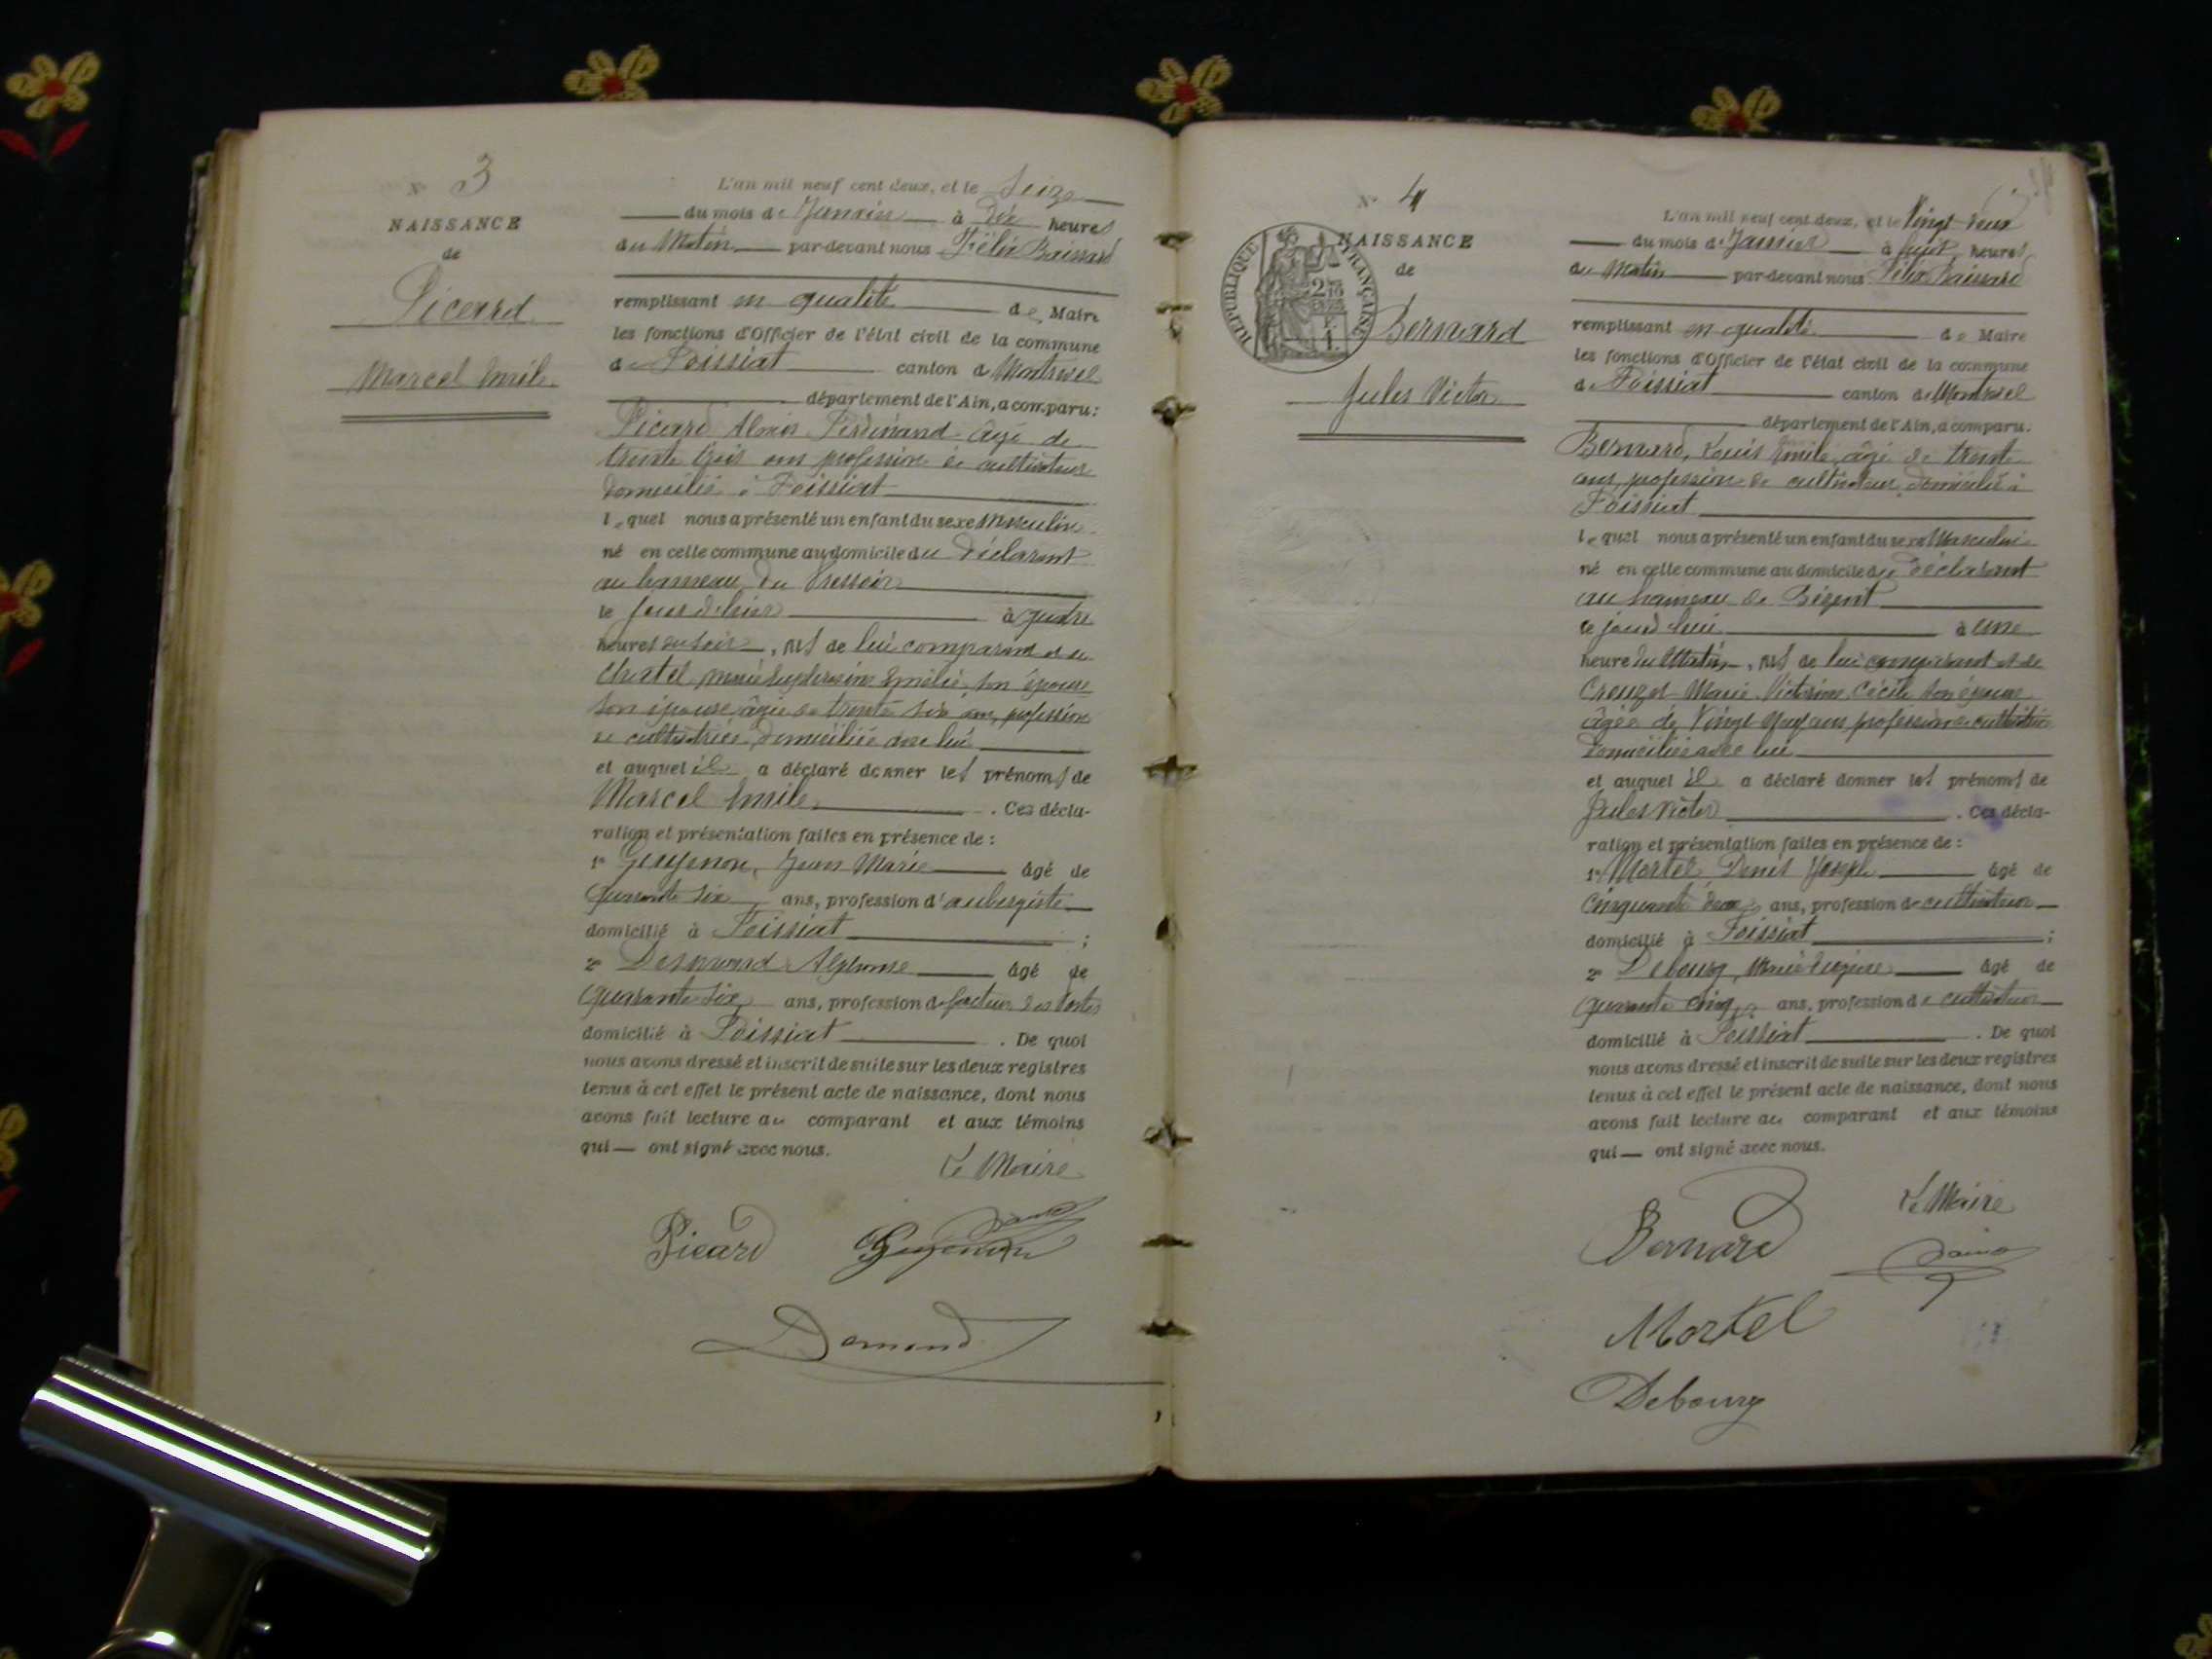 N° 3
NAISSANCE
de
Picard
Marcel Emile
L'an mil neuf cent deux, et le Seize
du mois de Janvier à Dix heures
du Matin par-devant nous Félix Baissard
remplissant en qualité de Maire
les fonctions d'Officier de l'état civil de la commune
de Foissiat canton de Montrevel
département de l'Ain, a comparu:
Picard Ferdinand âgé de
trente trois ans profession de cultivateur
domicilié à Foissiat
lequel nous a présenté un enfant du sexe Masculin
né en cette commune au domicile du déclarant
au hameau du Pressoir
le jour d'hier à quatre
heures du soir, fils de lui comparant et de
Chatel son épouse
son épouse âgée de trente six ans, profession
de cultivatrice, domiciliée avec lui
et auquel il a déclaré donner les prénoms de
Marcel Emile. Ces décla-
ration et présentation faites en présence de:
1° Gugenon, Jean Marie âgé de
quarante six ans, profession d'aubergiste
domicilié à Foissiat;
2° Alphonse âgé de
quarante six ans, profession de facteur des Postes
domicilié à Foissiat. De quoi
nous avons dressé et inscrit de suite sur les deux registres
tenus à cet effet le présent acte de naissance, dont nous
avons fait lecture au comparant et aux témoins
qui — ont signé avec nous.
Le Maire
Picard Gugenon
N° 4
REPUBLIQUE FRANÇAISE
NAISSANCE
de
Bernard
Jules Victor
L'an mil neuf cent deux, et le Vingt deux
du mois de Janvier à huit heures
du Matin par-devant nous Félix Baissard
remplissant en qualité de Maire
les fonctions d'Officier de l'état civil de la commune
de Foissiat canton de Montrevel
département de l'Ain, a comparu:
Bernard, Louis Emile âgé de trente
ans, profession de cultivateur, domicilié à
Foissiat
lequel nous a présenté un enfant du sexe Masculin
né en cette commune au domicile du déclarant
au hameau de
le jour d'hui à une
heure du Matin, fils de lui comparant et de
Marie Victorine Cécile son épouse
âgée de Vingt neuf ans profession de cultivatrice
domiciliée avec lui
et auquel il a déclaré donner les prénoms de
Jules Victor. Ces décla-
ration et présentation faites en présence de:
1° Mortel Denis Joseph âgé de
Cinquante deux ans, profession de cultivateur
domicilié à Foissiat;
2° Debourg, Marie Eugène âgé de
quarante cinq ans, profession de cultivateur
domicilié à Foissiat. De quoi
nous avons dressé et inscrit de suite sur les deux registres
tenus à cet effet le présent acte de naissance, dont nous
avons fait lecture au comparant et aux témoins
qui — ont signé avec nous.
Le Maire
Bernard
Mortel
Debourg